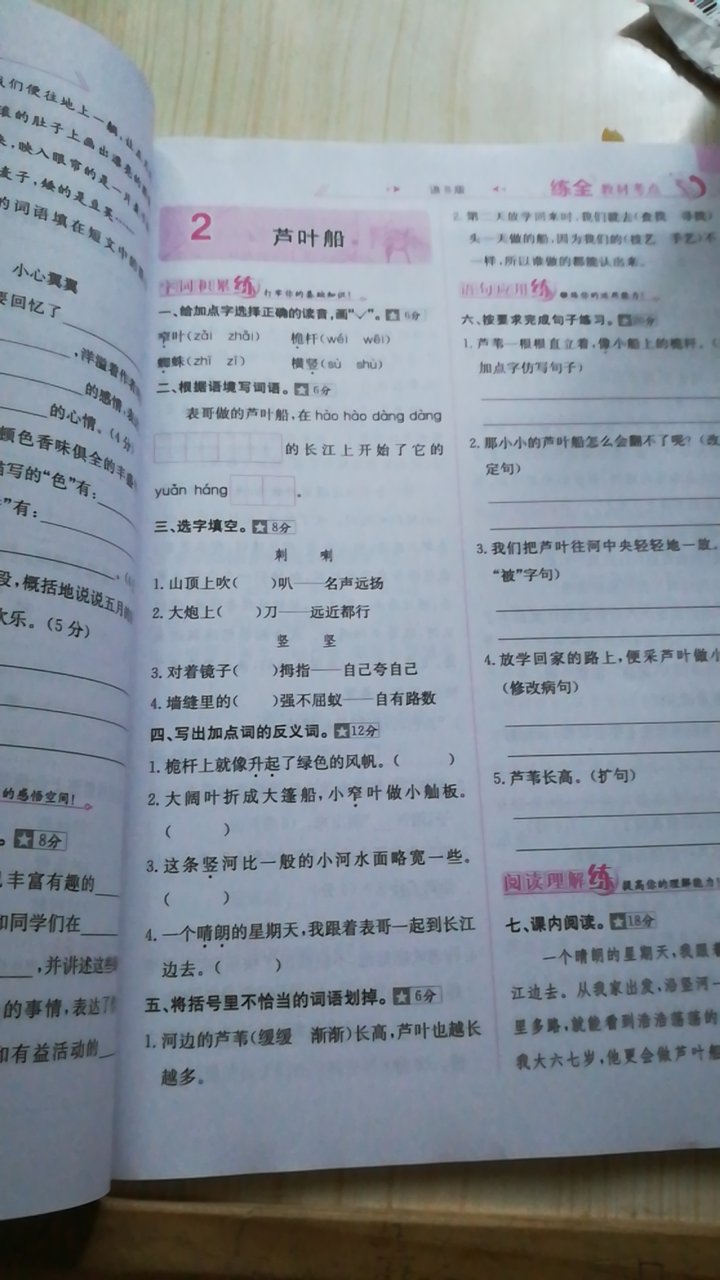 我们便往地上一躺，让
滚的肚子上画出
来，映入眼帘的是一片
麦子，矮的是豆荚……
的词语填在短文中的
小心翼翼
要回忆了
，洋溢着作者
的感情，表
的心情。（4分）
颜色香味俱全的丰
描写的“色”有：
”有：
段，概括地说说五月的
欢乐。（5分）
的感悟空间！
。★8分
丰富有趣的
和同学们在
，并讲述这些
的事情，表达了
和有益活动的
语S版
练全 教材考点
2 芦叶船
字词积累练 打牢你的基础知识！
一、给加点字选择正确的读音，画“✓”。★6分
窄叶（zǎi zhǎi） 桅杆（wéi wēi）
蜘蛛（zhī zī） 横竖（sù shù）
二、根据语境写词语。★6分
表哥做的芦叶船，在 hào hào dàng dàng
的长江上开始了它的
yuǎn háng 。
三、选字填空。★8分
刺 喇
1. 山顶上吹（ ）叭——名声远扬
2. 大炮上（ ）刀——远近都行
竖 坚
3. 对着镜子（ ）拇指——自己夸自己
4. 墙缝里的（ ）强不屈蚁——自有路数
四、写出加点词的反义词。★12分
1. 桅杆上就像升起了绿色的风帆。（ ）
2. 大阔叶折成大篷船，小窄叶做小舢板。
（ ）
3. 这条竖河比一般的小河水面略宽一些。
（ ）
4. 一个晴朗的星期天，我跟着表哥一起到长江
边去。（ ）
五、将括号里不恰当的词语划掉。★6分
1. 河边的芦苇（缓缓 渐渐）长高，芦叶也越长
越多。
2. 第二天放学回来时，我们就去（查找 寻找）
头一天做的船，因为我们的（技艺 手艺）不
一样，所以谁做的都能认出来。
语句应用练
六、按要求完成句子练习。
1. 芦苇一根根直立着，像小船上的桅杆。（
加点字仿写句子）
2. 那小小的芦叶船怎么会翻不了呢？（改
定句）
3. 我们把芦叶往河中央轻轻地一放。
“被”字句）
4. 放学回家的路上，便采芦叶做小
（修改病句）
5. 芦苇长高。（扩句）
阅读理解练 提高你的理解能力
七、课内阅读。★18分
一个晴朗的星期天，我跟着
江边去。从我家出发，沿竖河一
里多路，就能看到浩浩荡荡的
我大六七岁，他更会做芦叶船